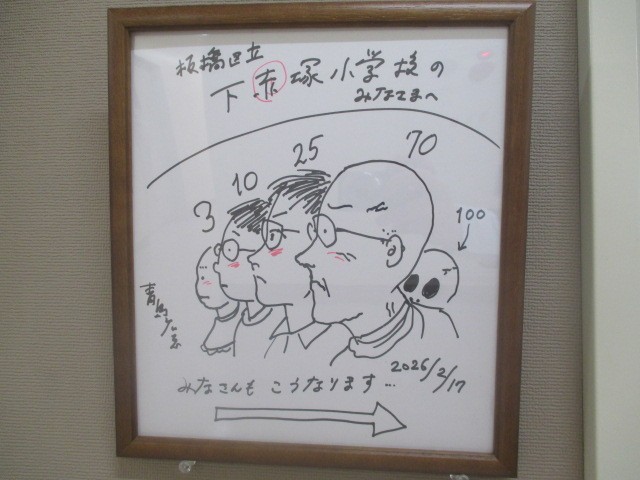 板橋区立
下赤塚小学校の
みなさまへ
3
10
25
70
100
2026/2/17
みなさんも こうなります…